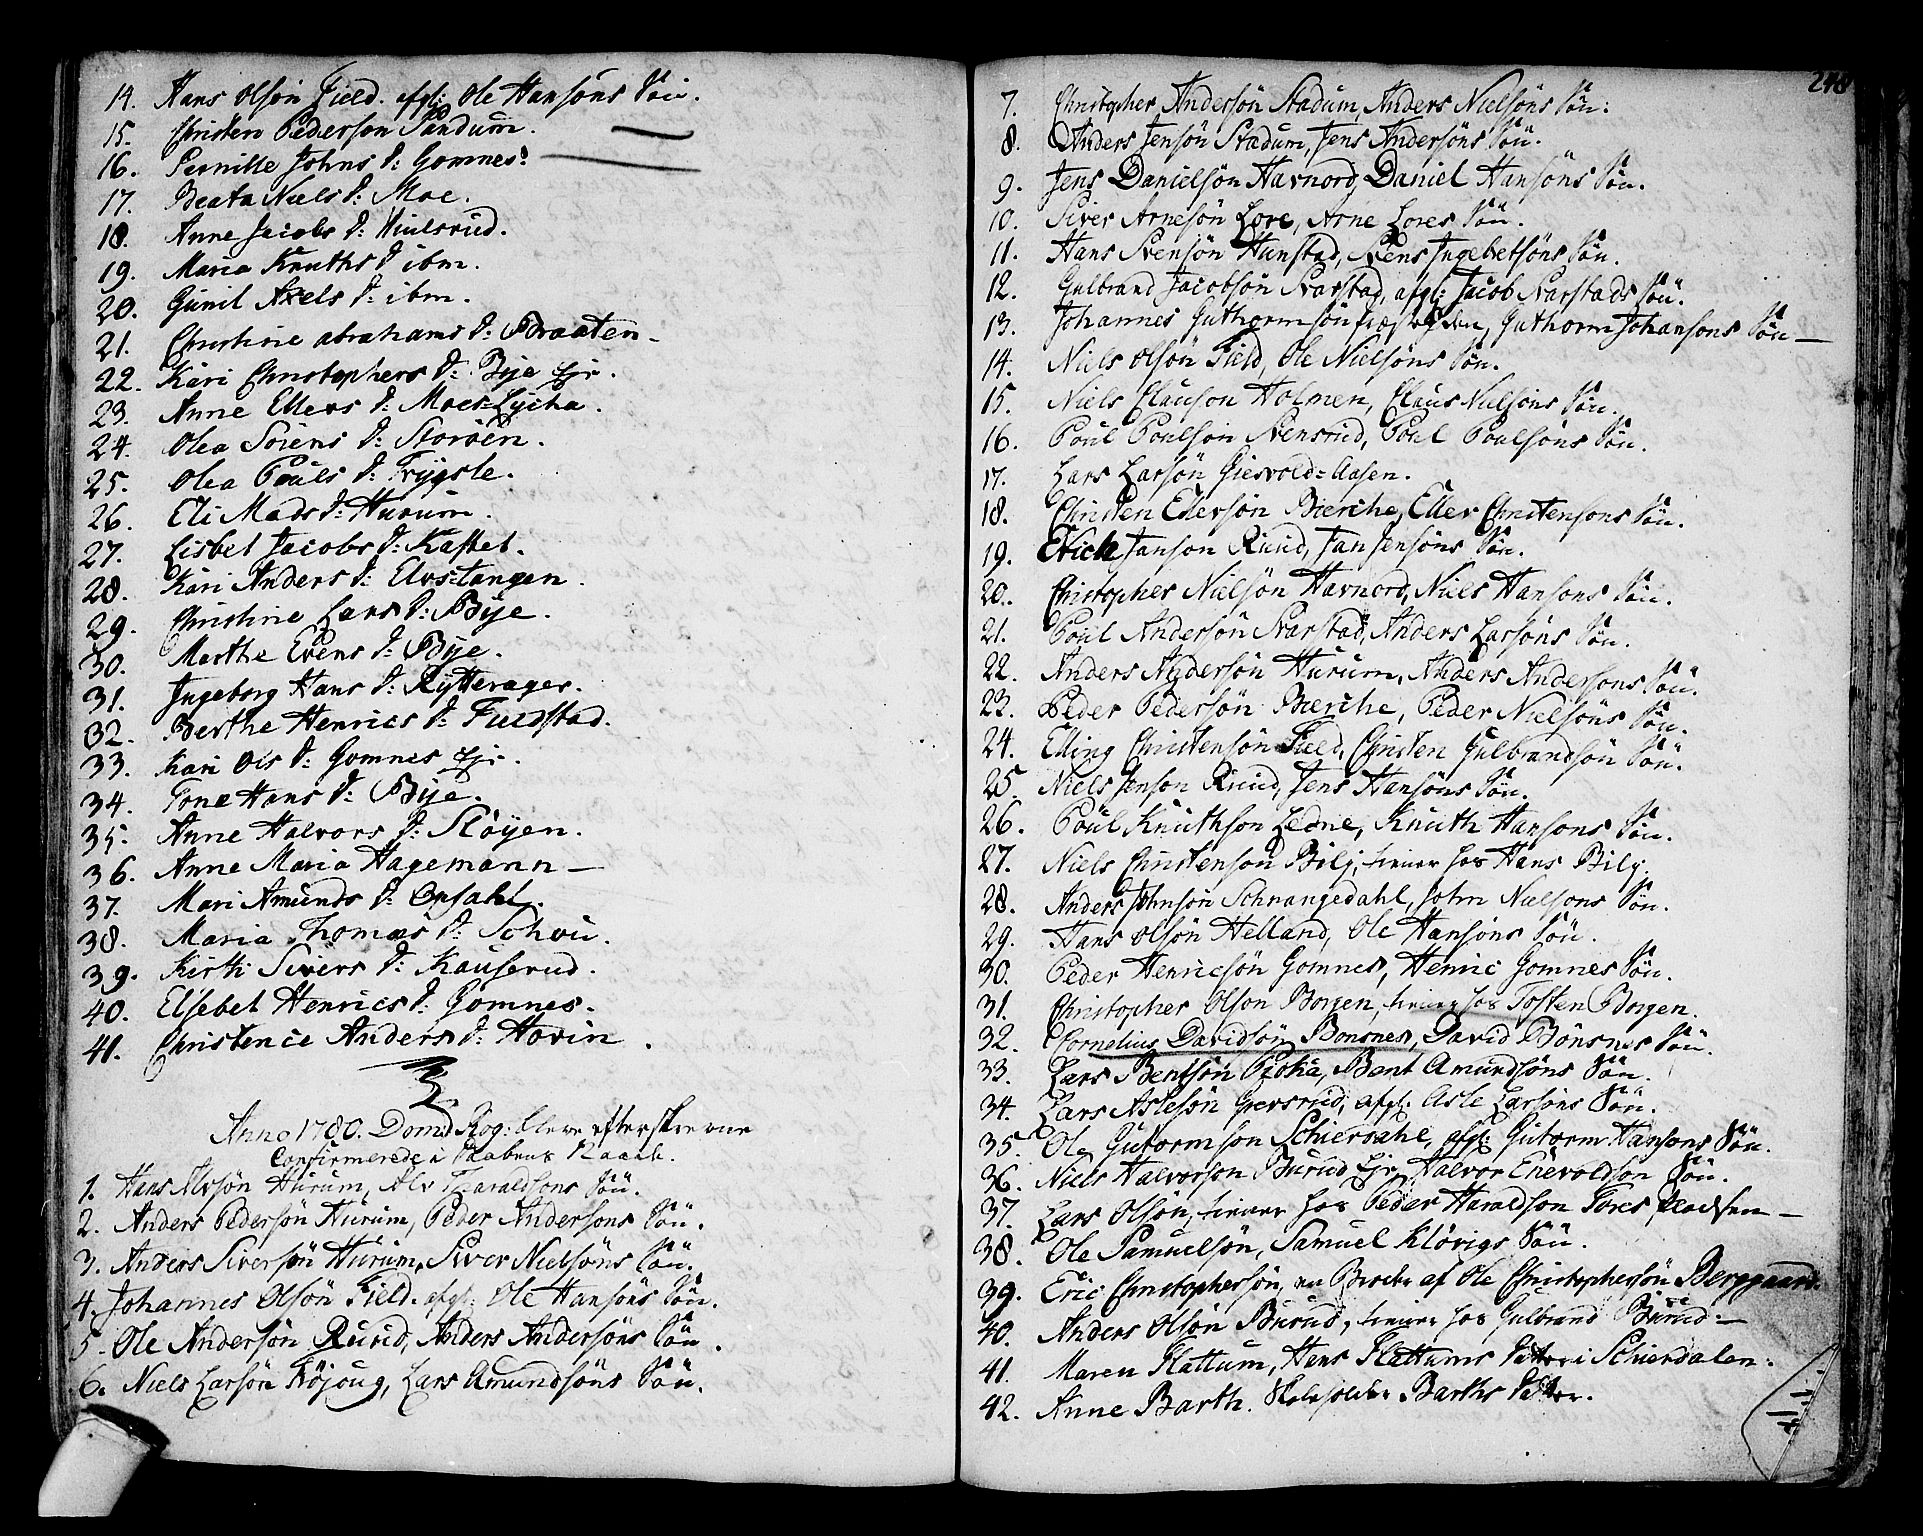 14. Hans Olsön Field. afgl: Ole Hansöns Sön.
15. Christen Pederson Sandum.
16. Pernille Johns D: Gomnes.
17. Beata Niels D: Moe.
18. Anne Jacobs D: Hiulsrud.
19. Maria Knuths D ibm.
20. Gunil Axels D: ibm.
21. Christine abrahams D: Braaten
22. Kari Christophers D: Bye Ejr.
23. Anne Ellers D: Moe Lycha.
24. Olea Sörens D: Storöen.
25. Olea Pouls D: Frygsle.
26. Eli Mads D: Hurum.
27. Lisbet Jacobs D: Kastet.
28. Kari Anders D: Elvstangen.
29. Christine Lars D: Bye.
30. Marthe Evens D: Bye.
31. Ingeborg Hans D: Rytterager.
32. Berthe Henrics D: Fieldstad.
33. Kari Ols D: Gomnes Ejr.
34. Tone Hans D: Bye.
35. Anne Halvors D: Slöyen.
36. Anne Maria Hagemann —
37. Mari Amunds D: Opsahl.
38. Maria Thomæs D: Schou.
39. Kirsti Sivers D: Kauserud.
40. Elsebet Henrics D: Gomnes.
41. Christence Anders D: Hovin.
Anno 1780. Dom: Rog: bleve efterskrevne
Confirmerede i Kirke.
1. Hans Alvsön Hurum, Alv Tharaldsons Sön.
2. Anders Pedersön Hurum, Peder Andersons Sön.
3. Anders Siversön Hurum, Siver Nielsöns Sön.
4. Johannes Olsön Field. afgl: Ole Hansöns Sön.
5. Ole Andersön Ruud, Anders Andersöns Sön.
6. Niels Larsön Röjoug, Lars Amundsöns Sön.
248
7. Christopher Andersön Stadum, Anders Nielsöns Sön.
8. Anders Jensön Stadum, Jens Andersöns Sön.
9. Jens Danielsön Havnord, Daniel Hansöns Sön.
10. Siver Arnesön Lore, Arne Lores Sön.
11. Hans Svensön Hunstad, Svens Ingebretsöns Sön.
12. Gulbrand Jacobsön Svarstad, afgl: Jacob Svarstads Sön.
13. Johannes Guthormsön Guthorm Johansons Sön —
14. Niels Olsön Field, Ole Nielsöns Sön.
15. Niels Clauson Holmen, Claus Nielsöns Sön.
16. Poul Poulsön Svensrud, Poul Poulsöns Sön.
17. Lars Larsön Giesvold-Aasen.
18. Christen Ellersön Bierche, Eller Christensons Sön.
19. Erich Janson Ruud, Jan Jensöns Sön.
20. Christopher Nielsön Havnord, Niels Hansons Sön.
21. Poul Andersön Svarstad, Anders Larsöns Sön.
22. Anders Andersön Hurum, Anders Andersons Sön.
23. Peder Pedersön Bierche, Peder Nielsöns Sön.
24. Elling Christensön Field, Christen Gulbrandsön Sön.
25. Niels Jenson Ruud, Jens Hansöns Sön.
26. Poul Knuthson Ledne, Knuth Hansons Sön.
27. Niels Christenson Bily, tiener hos Hans Bily.
28. Anders Johnsön Schnangedahl, John Nielsons Sön.
29. Hans Olsön Helland, Ole Hansöns Sön.
30. Peder Henricsön Gomnes, Henric Gomnes Sön.
31. Christopher Olson Borgen, tiener hos Tosten Borgen.
32. Cornelius Davidsön Bonsnes, David Bönsnes Sön.
33. Lars Bentsön Bent Amundsöns Sön.
34. Lars Aslesön Gversrud, afgl: Asle Larsöns Sön.
35. Ole Gutormson Schierdahl, afgl: Gutorm Hansons Sön.
36. Niels Halvorson Burud Ejr, Halvor Enevoldson Sön.
37. Lars Olsön, tiener hos Peder Haraldson Tores Pladsen —
38. Ole Samuelsön, Samuel Klövigs Sön.
39. Eric Christophersön, en Broder af Ole Christophersön Berggaard.
40. Anders Olsön Burud, tiener hos Gulbrand Burud —
41. Maren Flattum, Hens Flattums Datter i Schierdalen.
42. Anne Barth. Skoleholder Barths Datter.